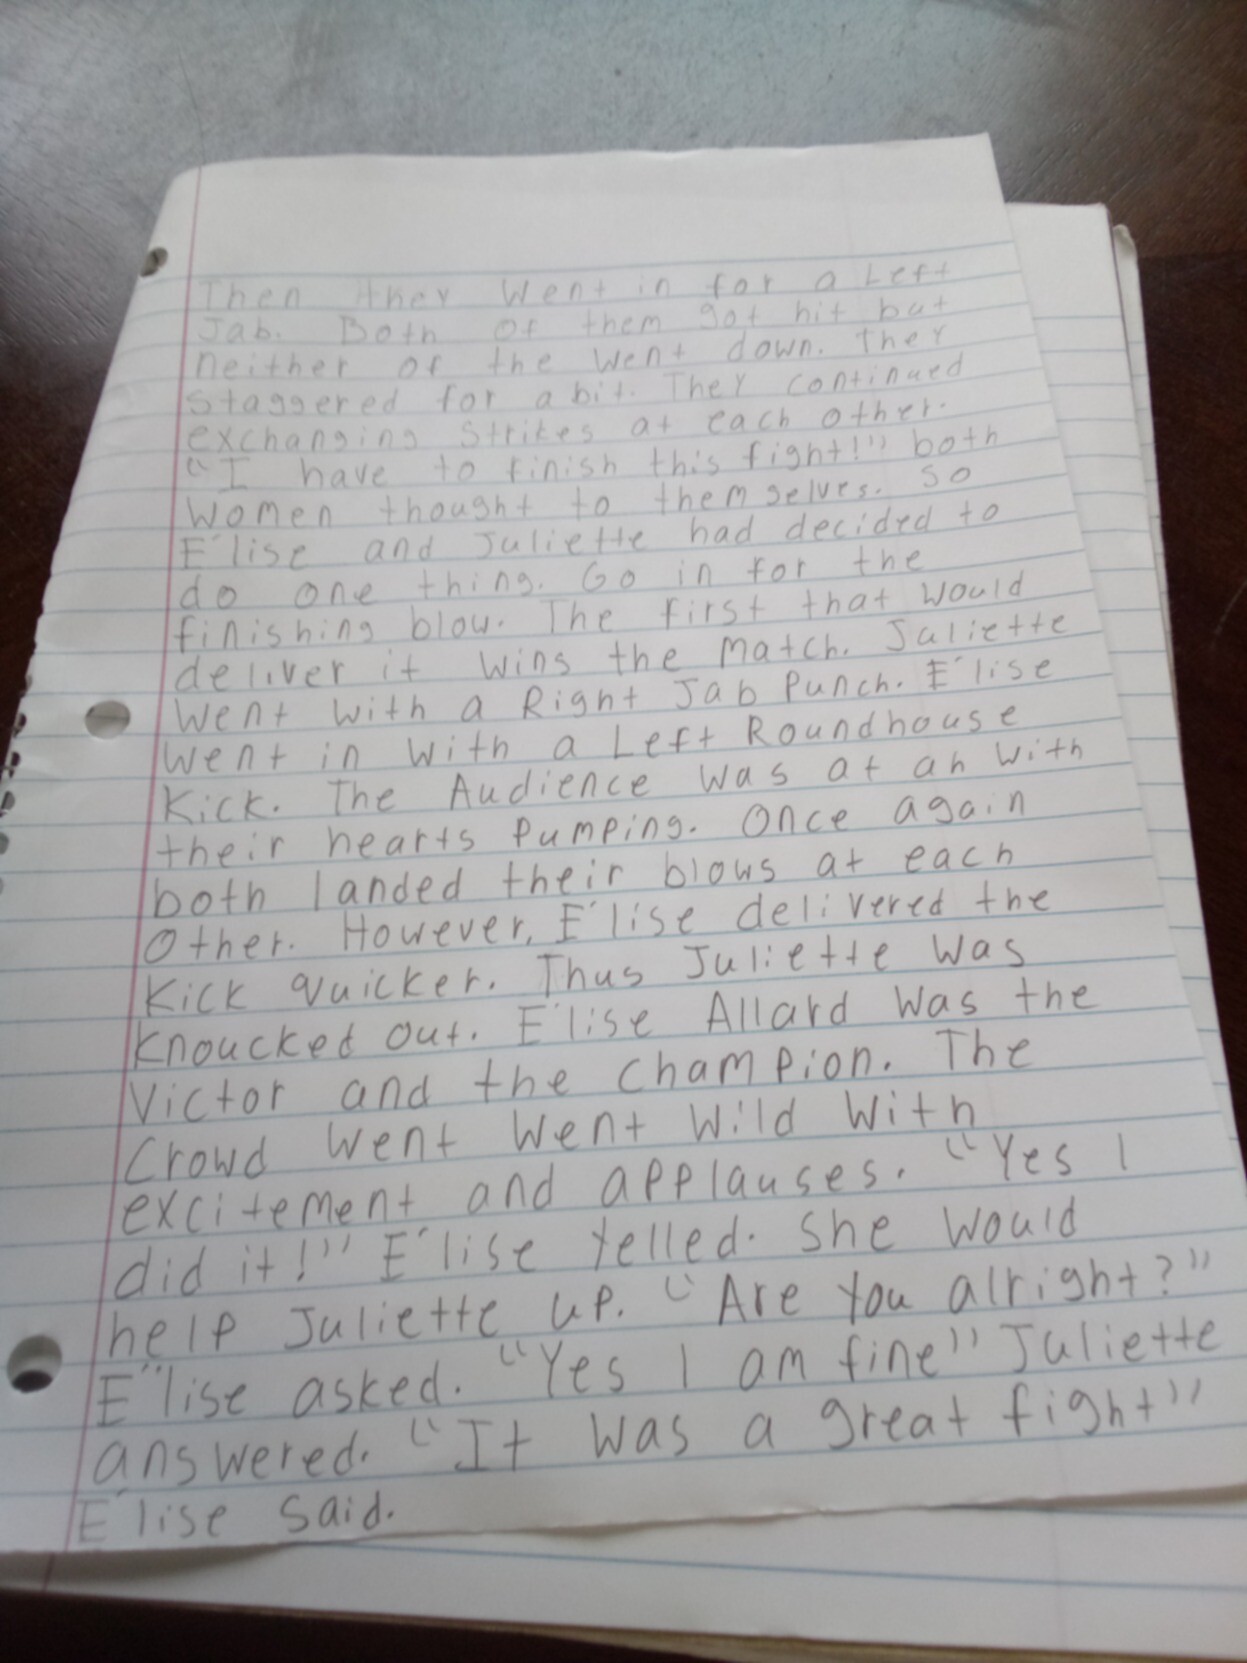 Then they went in for a Left
Jab. Both of them got hit but
neither of the went down. They
staggered for a bit. They continued
exchanging strikes at each other.
"I have to finish this fight!" both
women thought to themselves. So
E'lise and Juliette had decided to
do one thing. Go in for the
finishing blow. The first that would
deliver it wins the match. Juliette
went with a Right Jab Punch. E'lise
went in with a Left Roundhouse
Kick. The Audience was at ah with
their hearts pumping. Once again
both landed their blows at each
other. However, E'lise delivered the
Kick quicker. Thus Juliette was
Knoucked out. E'lise Allard was the
Victor and the champion. The
Crowd went went wild with
excitement and applauses. "Yes I
did it!" E'lise yelled. She would
help Juliette up. "Are you alright?"
E'lise asked. "Yes I am fine" Juliette
answered. "It was a great fight"
E'lise said.